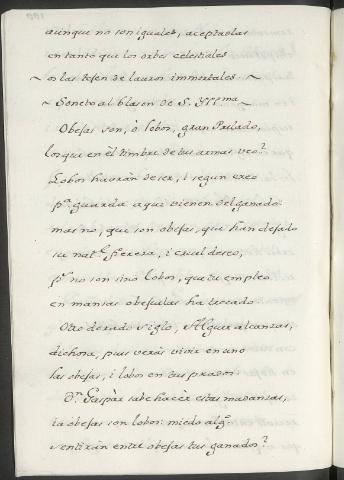 aunque no son iguales, aceptadlas
en tanto que los orbes celestiales
os las tesen de lauros immortales.
Soneto al blason de S. Yll.ma
Obejas son, ò lobos, gran Prelado,
los que en èl timbre de tus armas veo?
Lobos havrán de ser, i segun creo
p.a guarda aqui vienen del ganado.
mas no, que son obejas, que han dejado
su nat.l fiereza, i cruel deseo,
p.r no son sino lobos, que tu empleo
en mansas obejuelas ha trocado.
Otro dorado siglo, Alguer alcanzas,
dichosa, pues verás vivir en uno
las obejas, i lobos en tus prados.
D.n Gaspàr sabe hacèr estas mudanzas,
ia obejas son lobos: miedo alg.o
sentirán entre obejas tus ganados?